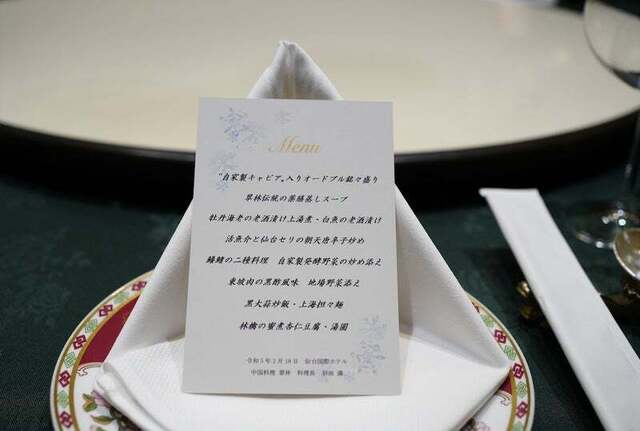 Menu
“自家製キャビア„入りオードブル銘々盛り
翠林伝統の薬膳蒸しスープ
牡丹海老の老酒漬け上湯煮・白魚の老酒漬け
活魚介と仙台セリの朝天唐辛子炒め
鱶鰭の二種料理 自家製発酵野菜の炒め添え
東坡肉の黒酢風味 地場野菜添え
黒大蒜炒飯・上海担々麺
林檎の蜜煮杏仁豆腐・湯圓
令和5年2月18日 仙台国際ホテル
中国料理 翠林 料理長